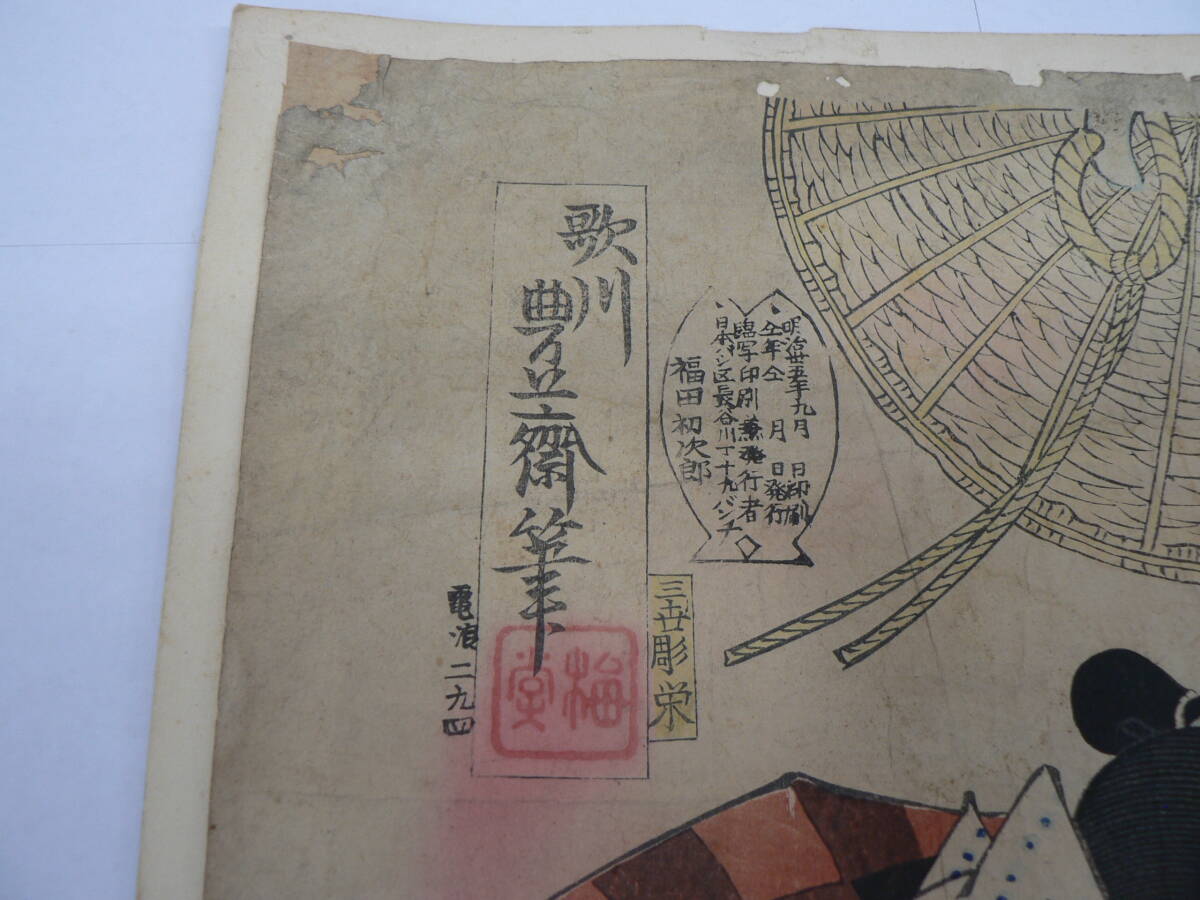 明治卅五年九月　日印刷
仝年仝　月　日発行
臨写印刷兼発行者
日本バシ区長谷川丁十九バンチ
福田初次郎
歌川
豊斎筆
三世彫栄
梅堂
電浪二九四